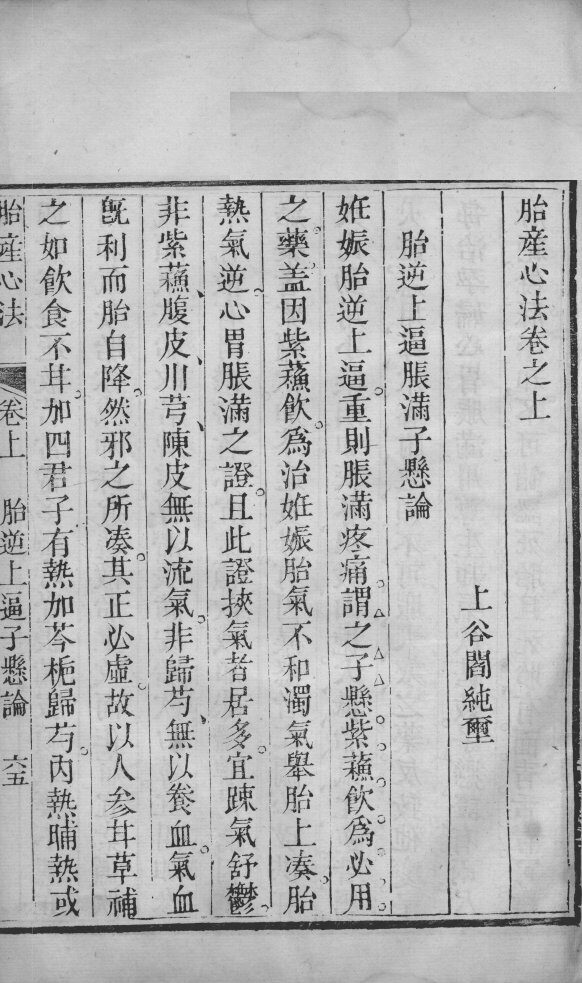 胎產心法卷之上
上谷閻純璽
胎逆上逼脹滿子懸論
姙娠胎逆上逼重則脹滿疼痛謂之子懸紫蘓飲爲必用
之藥葢因紫蘓飲爲治姙娠胎氣不和濁氣舉胎上凑胎
熱氣逆心胃脹滿之證且此證挾氣者居多宜踈氣舒鬱
非紫蘓腹皮川芎陳皮無以流氣非歸芍無以養血氣血
旣利而胎自降然邪之所凑其正必虛故以人參甘草補
之如飮食不甘加四君子有熱加芩梔歸芍內熱晡熱或
胎產心法 卷上 胎逆上逼子懸論 六五